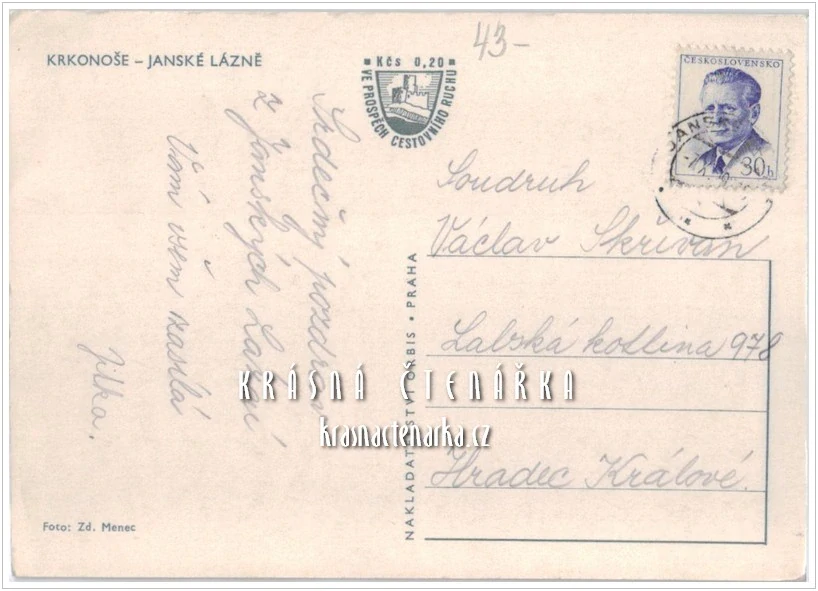 KRKONOŠE – JANSKÉ LÁZNĚ
43-
Kčs 0,20
VE PROSPĚCH CESTOVNÍHO RUCHU
ČESKOSLOVENSKO
30h
JANSK
Srdečný pozdrav
z Jánských Lázní
Vám všem zasílá
Jitka.
Soudruh
Václav Skřivan
Labská kotlina 978
Hradec Králové.
NAKLADATELSTVÍ ORBIS • PRAHA
KRÁSNÁ ČTENÁŘKA
krasnactenarka.cz
Foto: Zd. Menec